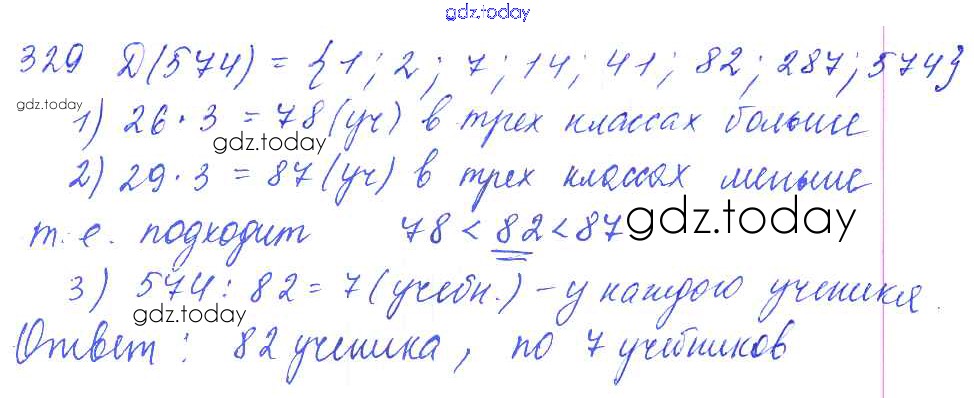 gdz.today
329 D(574) = {1; 2; 7; 14; 41; 82; 287; 574}
gdz.today
1) 26 · 3 = 78 (уч) в трех классах больше
gdz.today
2) 29 · 3 = 87 (уч) в трех классах меньше
т. е. подходит 78 < 82 < 87
gdz.today
3) 574 : 82 = 7 (учебн.) – у каждого ученика.
gdz.today
Ответ : 82 ученика, по 7 учебников